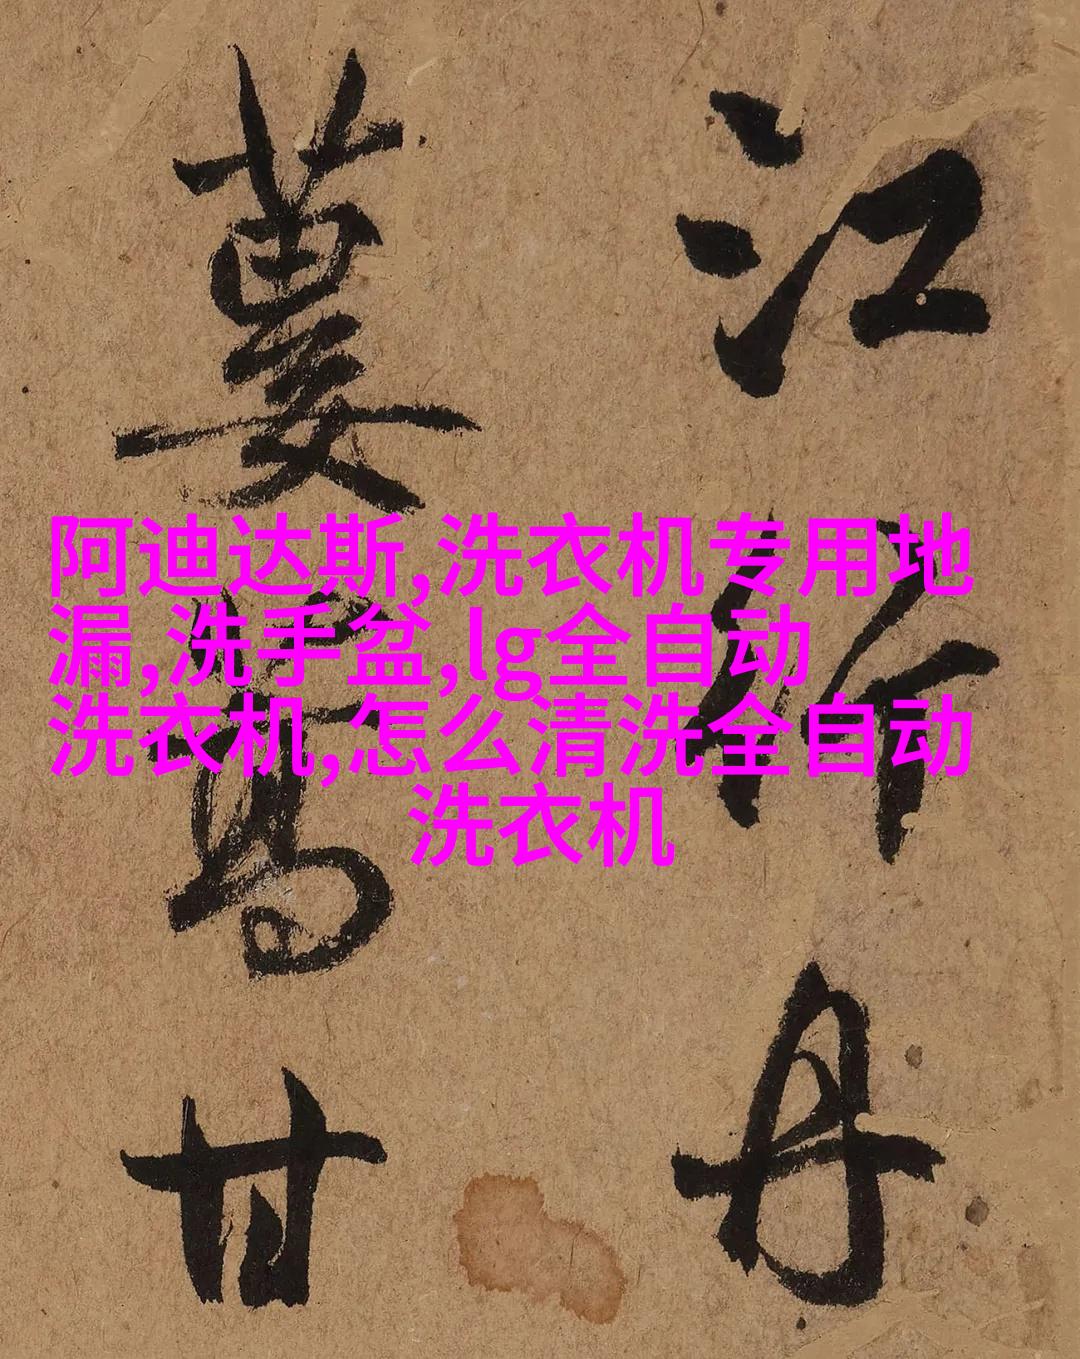 江
丹
甘
阿迪达斯,洗衣机专用地
漏,洗手盆,lg全自动
洗衣机,怎么清洗全自动
洗衣机